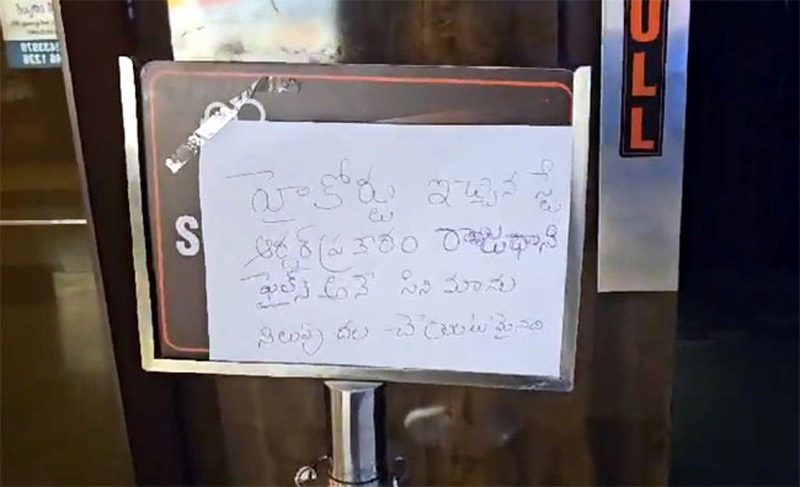 హైకోర్టు ఇచ్చిన స్టే
ఆర్డర్ ప్రకారం రాజధాని
ఫైల్స్ అనే సినిమాను
నిలుపుదల చేయుటమైనది
S
ULL